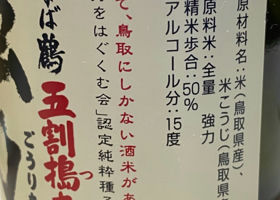 原材料名:米(鳥取県産)、
米こうじ(鳥取県
原料米:全量 強力
精米歩合:50%
アルコール分:15度
て、鳥取にしかない酒米があ
をはぐくむ会」認定純粋種子
ば鶴
五割搗
つ
ごうりき